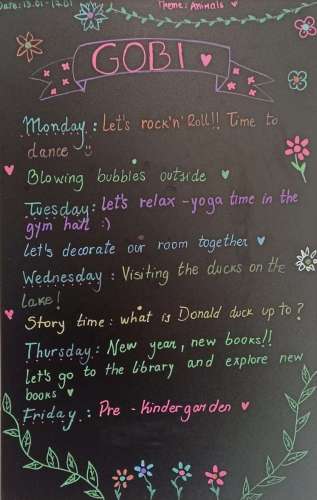 Date: 13.01-17.01
Theme: Animals
GOBI
Monday: Let's rock'n'Roll!! Time to
dance
Blowing bubbles outside
Tuesday: let's relax - yoga time in the
gym hall :)
let's decorate our room together
Wednesday: Visiting the ducks on the
lake!
Story time: what is Donald duck up to?
Thursday: New year, new books!!
let's go to the library and explore new
books
Friday: Pre-Kindergarden